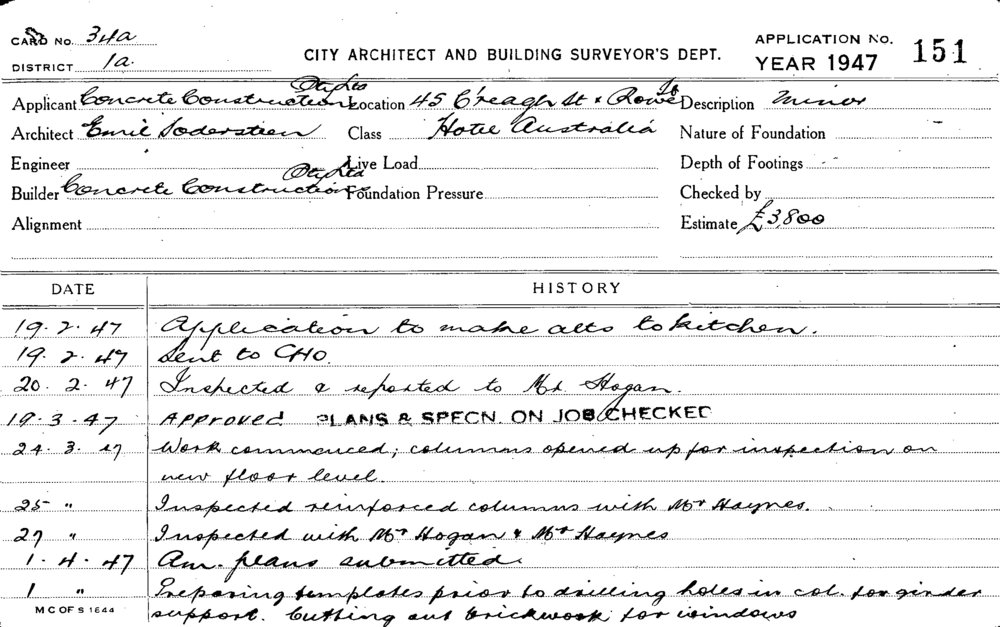 CARD No. 34a
DISTRICT 1a.
CITY ARCHITECT AND BUILDING SURVEYOR'S DEPT.
APPLICATION No. 151
YEAR 1947
Applicant Concrete Constructions Pty Ltd Location 45 C'reagh St & Rowe Description Minor
Architect Emil Sodersteen Class Hotel Australia Nature of Foundation
Engineer Live Load Depth of Footings
Builder Concrete Constructions Pty Ltd Foundation Pressure Checked by
Alignment Estimate £3,800
DATE HISTORY
19.2.47 Application to make alts to kitchen.
19.2.47 Sent to CHO.
20.2.47 Inspected & reported to Mr Hogan.
19.3.47 APPROVED PLANS & SPECN. ON JOB CHECKED
24.3.47 Work commenced; columns opened up for inspection on
new floor level.
25 " Inspected reinforced columns with Mr Haynes.
27 " Inspected with Mr Hogan & Mr Haynes
1.4.47 Am. plans submitted.
1 " Preparing templates prior to drilling holes in col. for girder
support. Cutting out brickwork for windows
M C OF S 1644